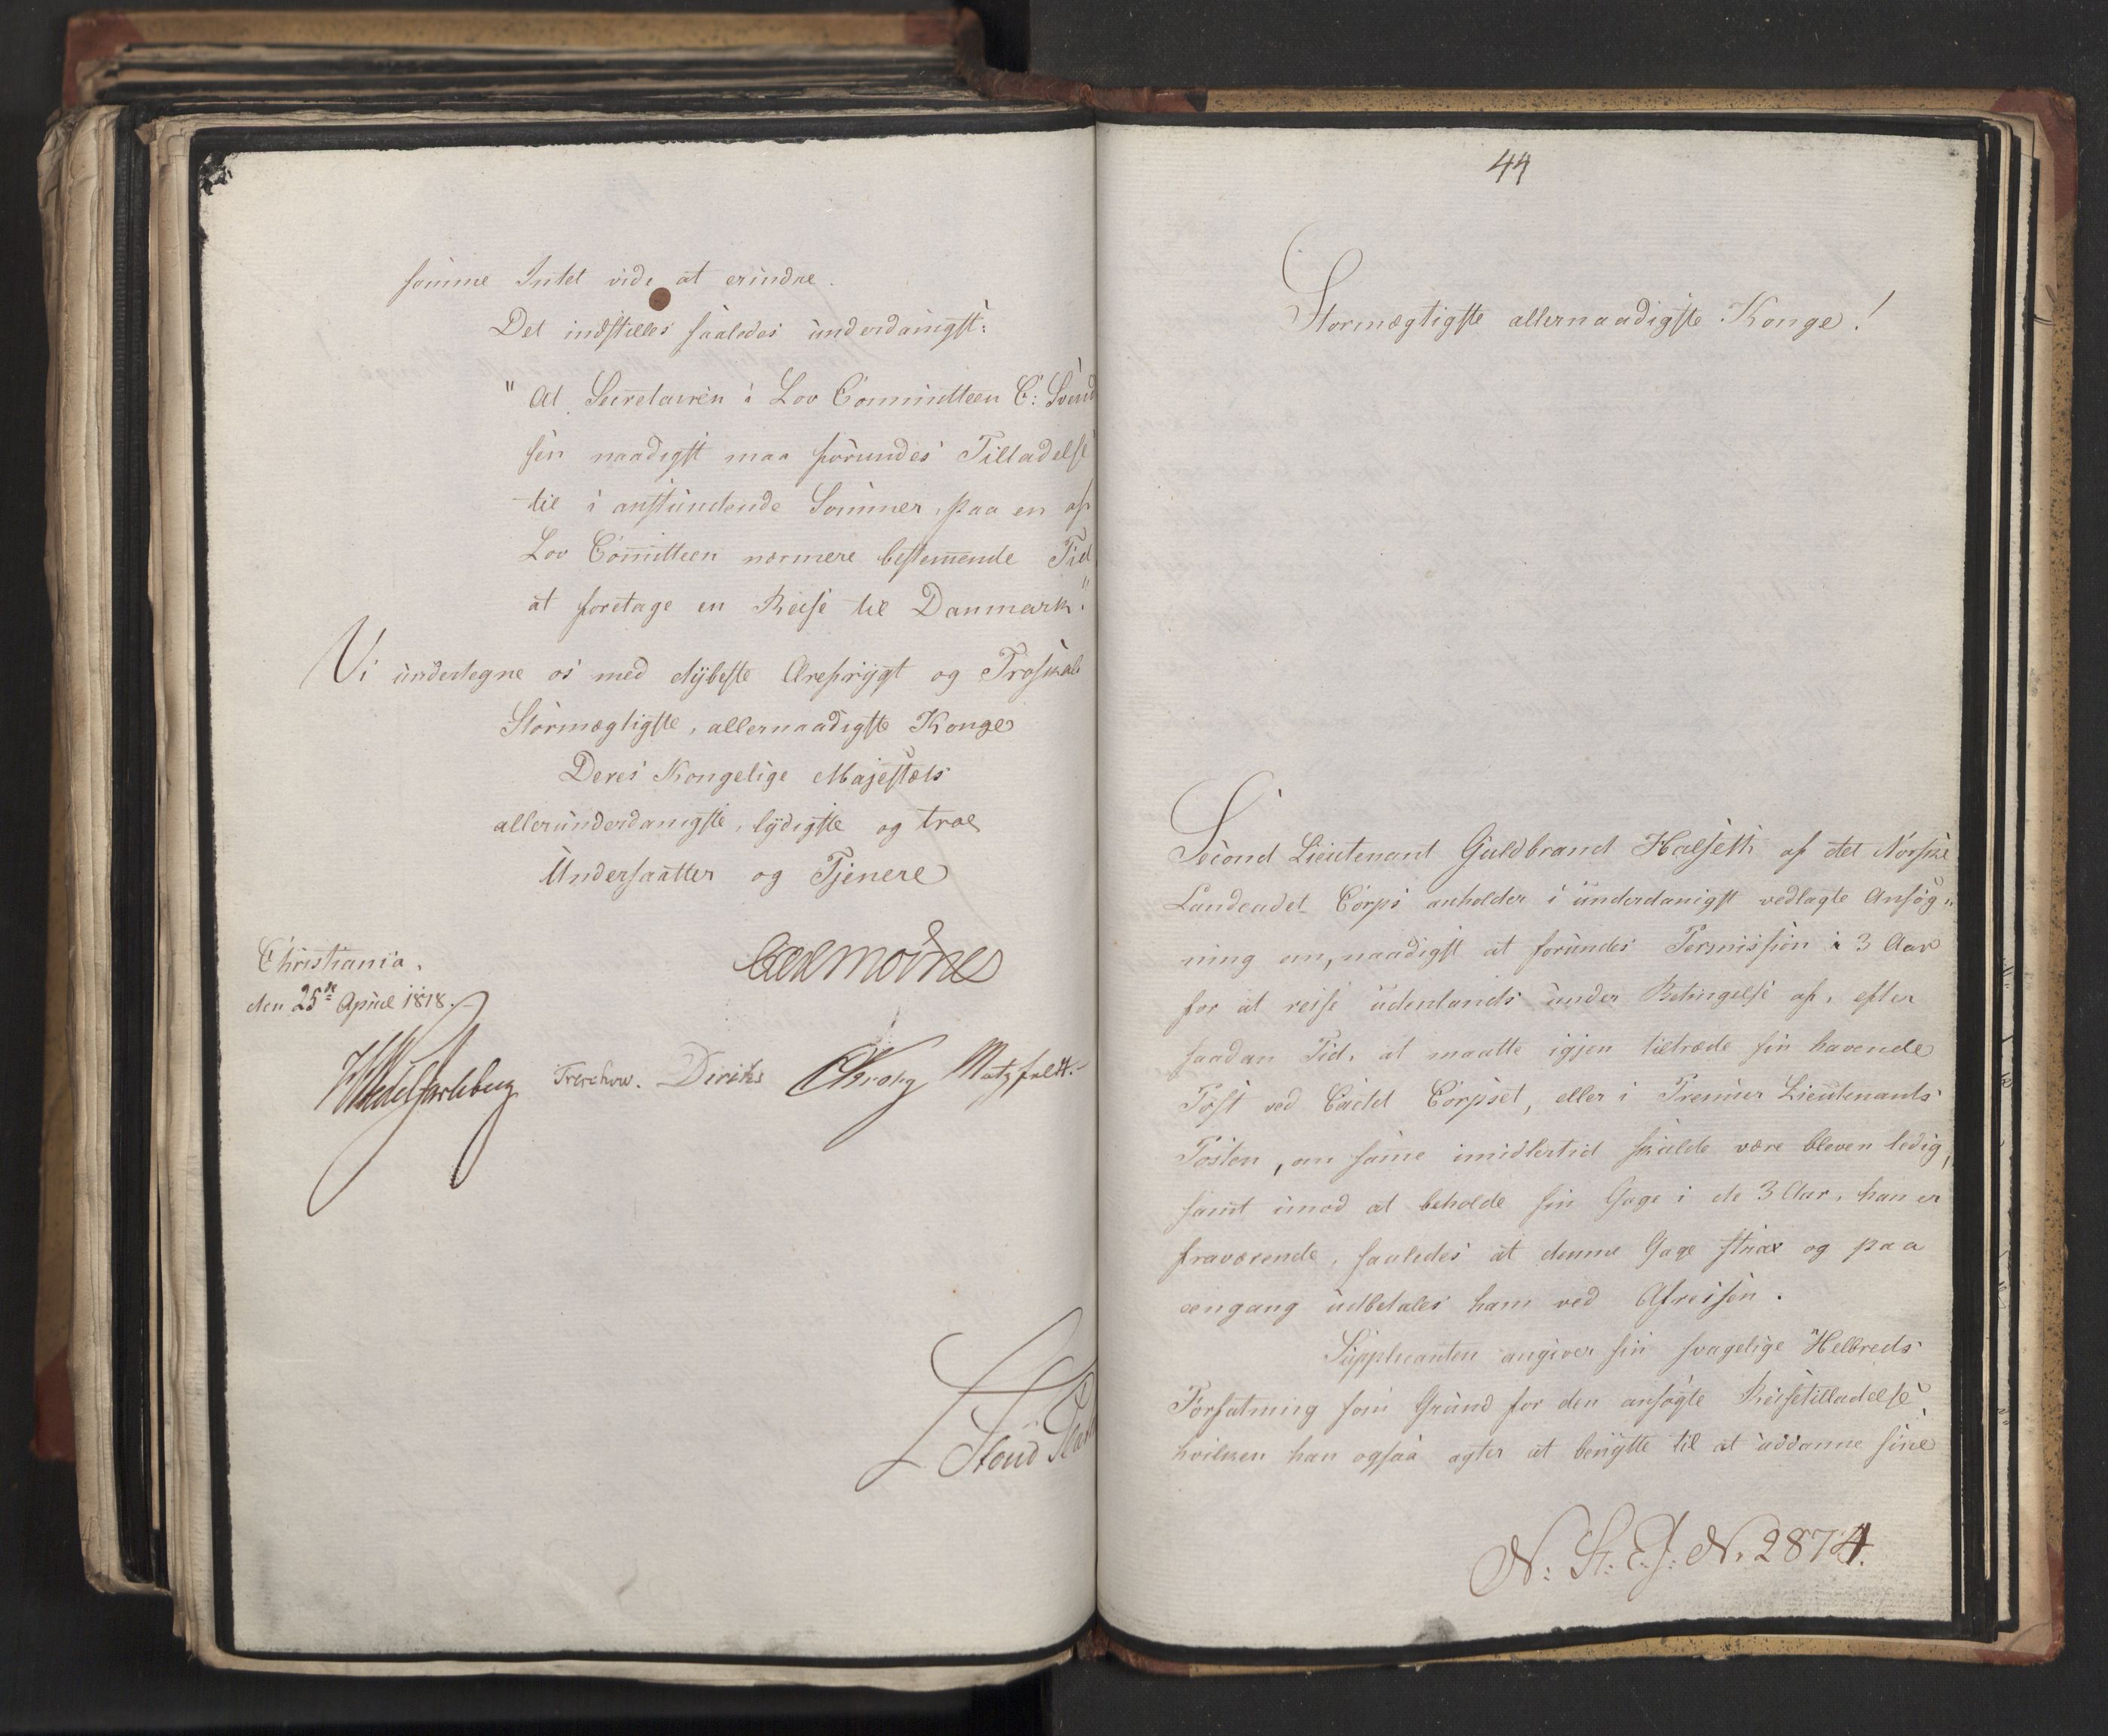 samme Intet vide at erindre.
Det indstilles saaledes underdanigst:
"At Secretairen i Lov Committeen C: Svend
sen naadigst maa forundes Tilladelse
til i anstundende Sommer, paa en af
Lov Com̅itteen nærmere bestem̅ende Tid
at foretage en Reise til Danmark."
Vi undertegne os med dybeste Ærefrygt og Troskab
Stormægtigste, allernaadigste Konge
Deres Kongelige Majestæts
allerunderdanigste, lydigste og troe
Undersaatter og Tjenere
Christiania,
den 25de April 1818.
Carl Mörner
HWedelJarlsberg Treschow. Diriks CKrohg Motzfeldt.
44
Stormægtigste allernaadigste Konge!
Second Lieutenant Guldbrand Halseth af det Norske
Landcadet Corps anholder i underdanigst vedlagte Ansøg„
ning om, naadigst at forundes Permission i 3 Aar
for at reise udenlands under Betingelse af, efter
saadan Tid, at maatte igjen tiltræde sin havende
Post ved Cadet Corpset, eller i Premier Lieutenants
Posten, om sam̅e imidlertid skulde være bleven ledig,
samt imod at beholde sin Gage i de 3 Aar, han er
fraværende, saaledes at denne Gage strax og paa
eengang udbetales ham ved Afreisen.
Supplicanten angiver sin svagelige Helbreds
Forfatning som Grund for den ansøgte Reisetilladelse,
hvilken han ogsaa agter at benytte til at uddanne sine
N: St: E: J: N. 2874.